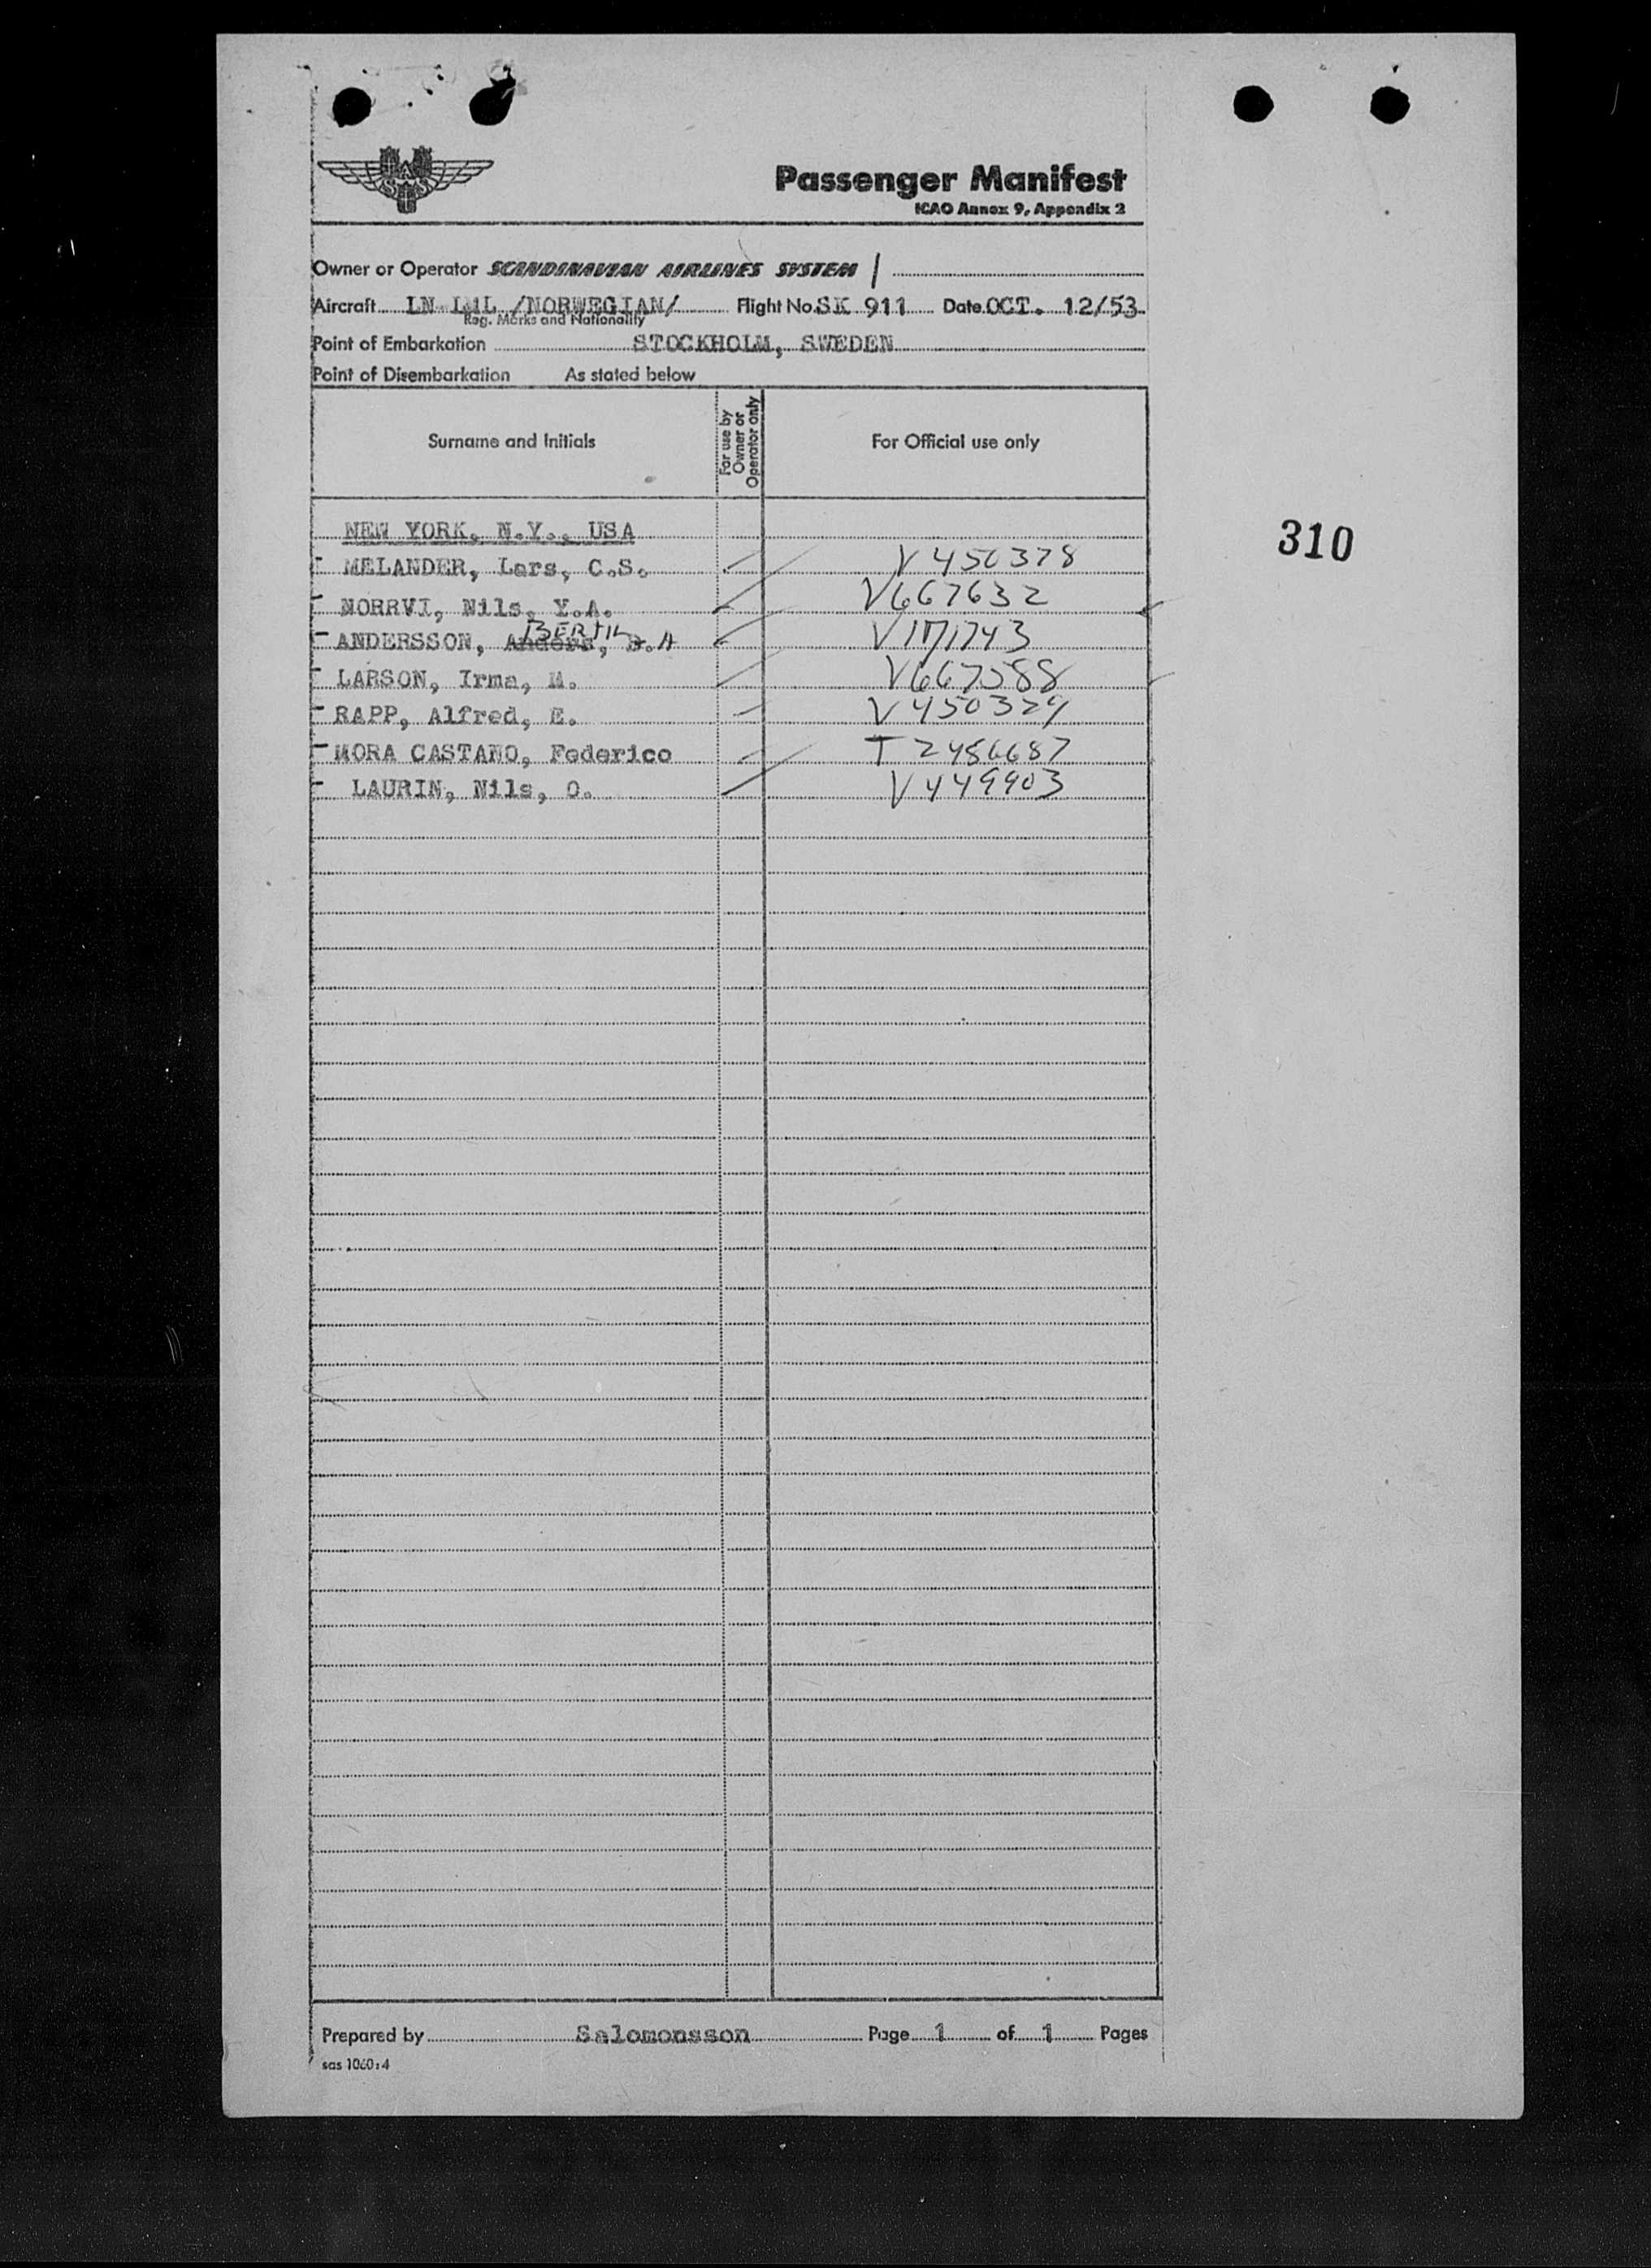 SAS
Passenger Manifest
ICAO Annex 9, Appendix 2
Owner or Operator SCANDINAVIAN AIRLINES SYSTEM /
Aircraft LN-LML /NORWEGIAN/ Flight No. SK 911 Date OCT. 12/53
Reg. Marks and Nationality
Point of Embarkation STOCKHOLM, SWEDEN
Point of Disembarkation As stated below
Surname and Initials For use by Owner or Operator only For Official use only
NEW YORK, N.Y., USA
310
MELANDER, Lars, C.S. V 450378
NORRVI, Nils, Y.A. V667632
BERTIL
ANDERSSON, Anders, B.A V171743
LARSON, Irma, M. V667588
RAPP, Alfred, E. V450329
MORA CASTANO, Federico T 2486687
LAURIN, Nils, O. V449903
Prepared by Salomonsson Page 1 of 1 Pages
sas 1060:4